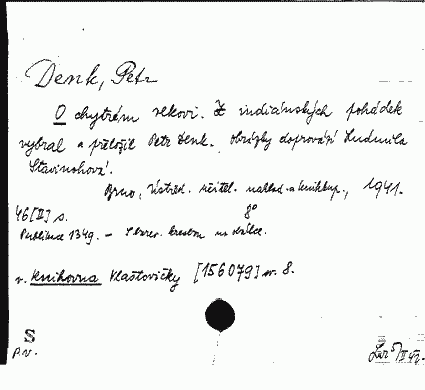 Denk, Petr
O chytrém vlkovi. Z indiánských pohádek
vybral a přeložil Petr Denk. Obrázky doprovází Ludmila
Stavinohová.
Brno, Ústřed. učitel. naklad. a knihkup., 1941.
46 [II] s. 8°
Publikace 1349. - S barev. kresbou na obálce.
v. Knihovna Vlaštovičky [156079] sv. 8.
S
P.V.